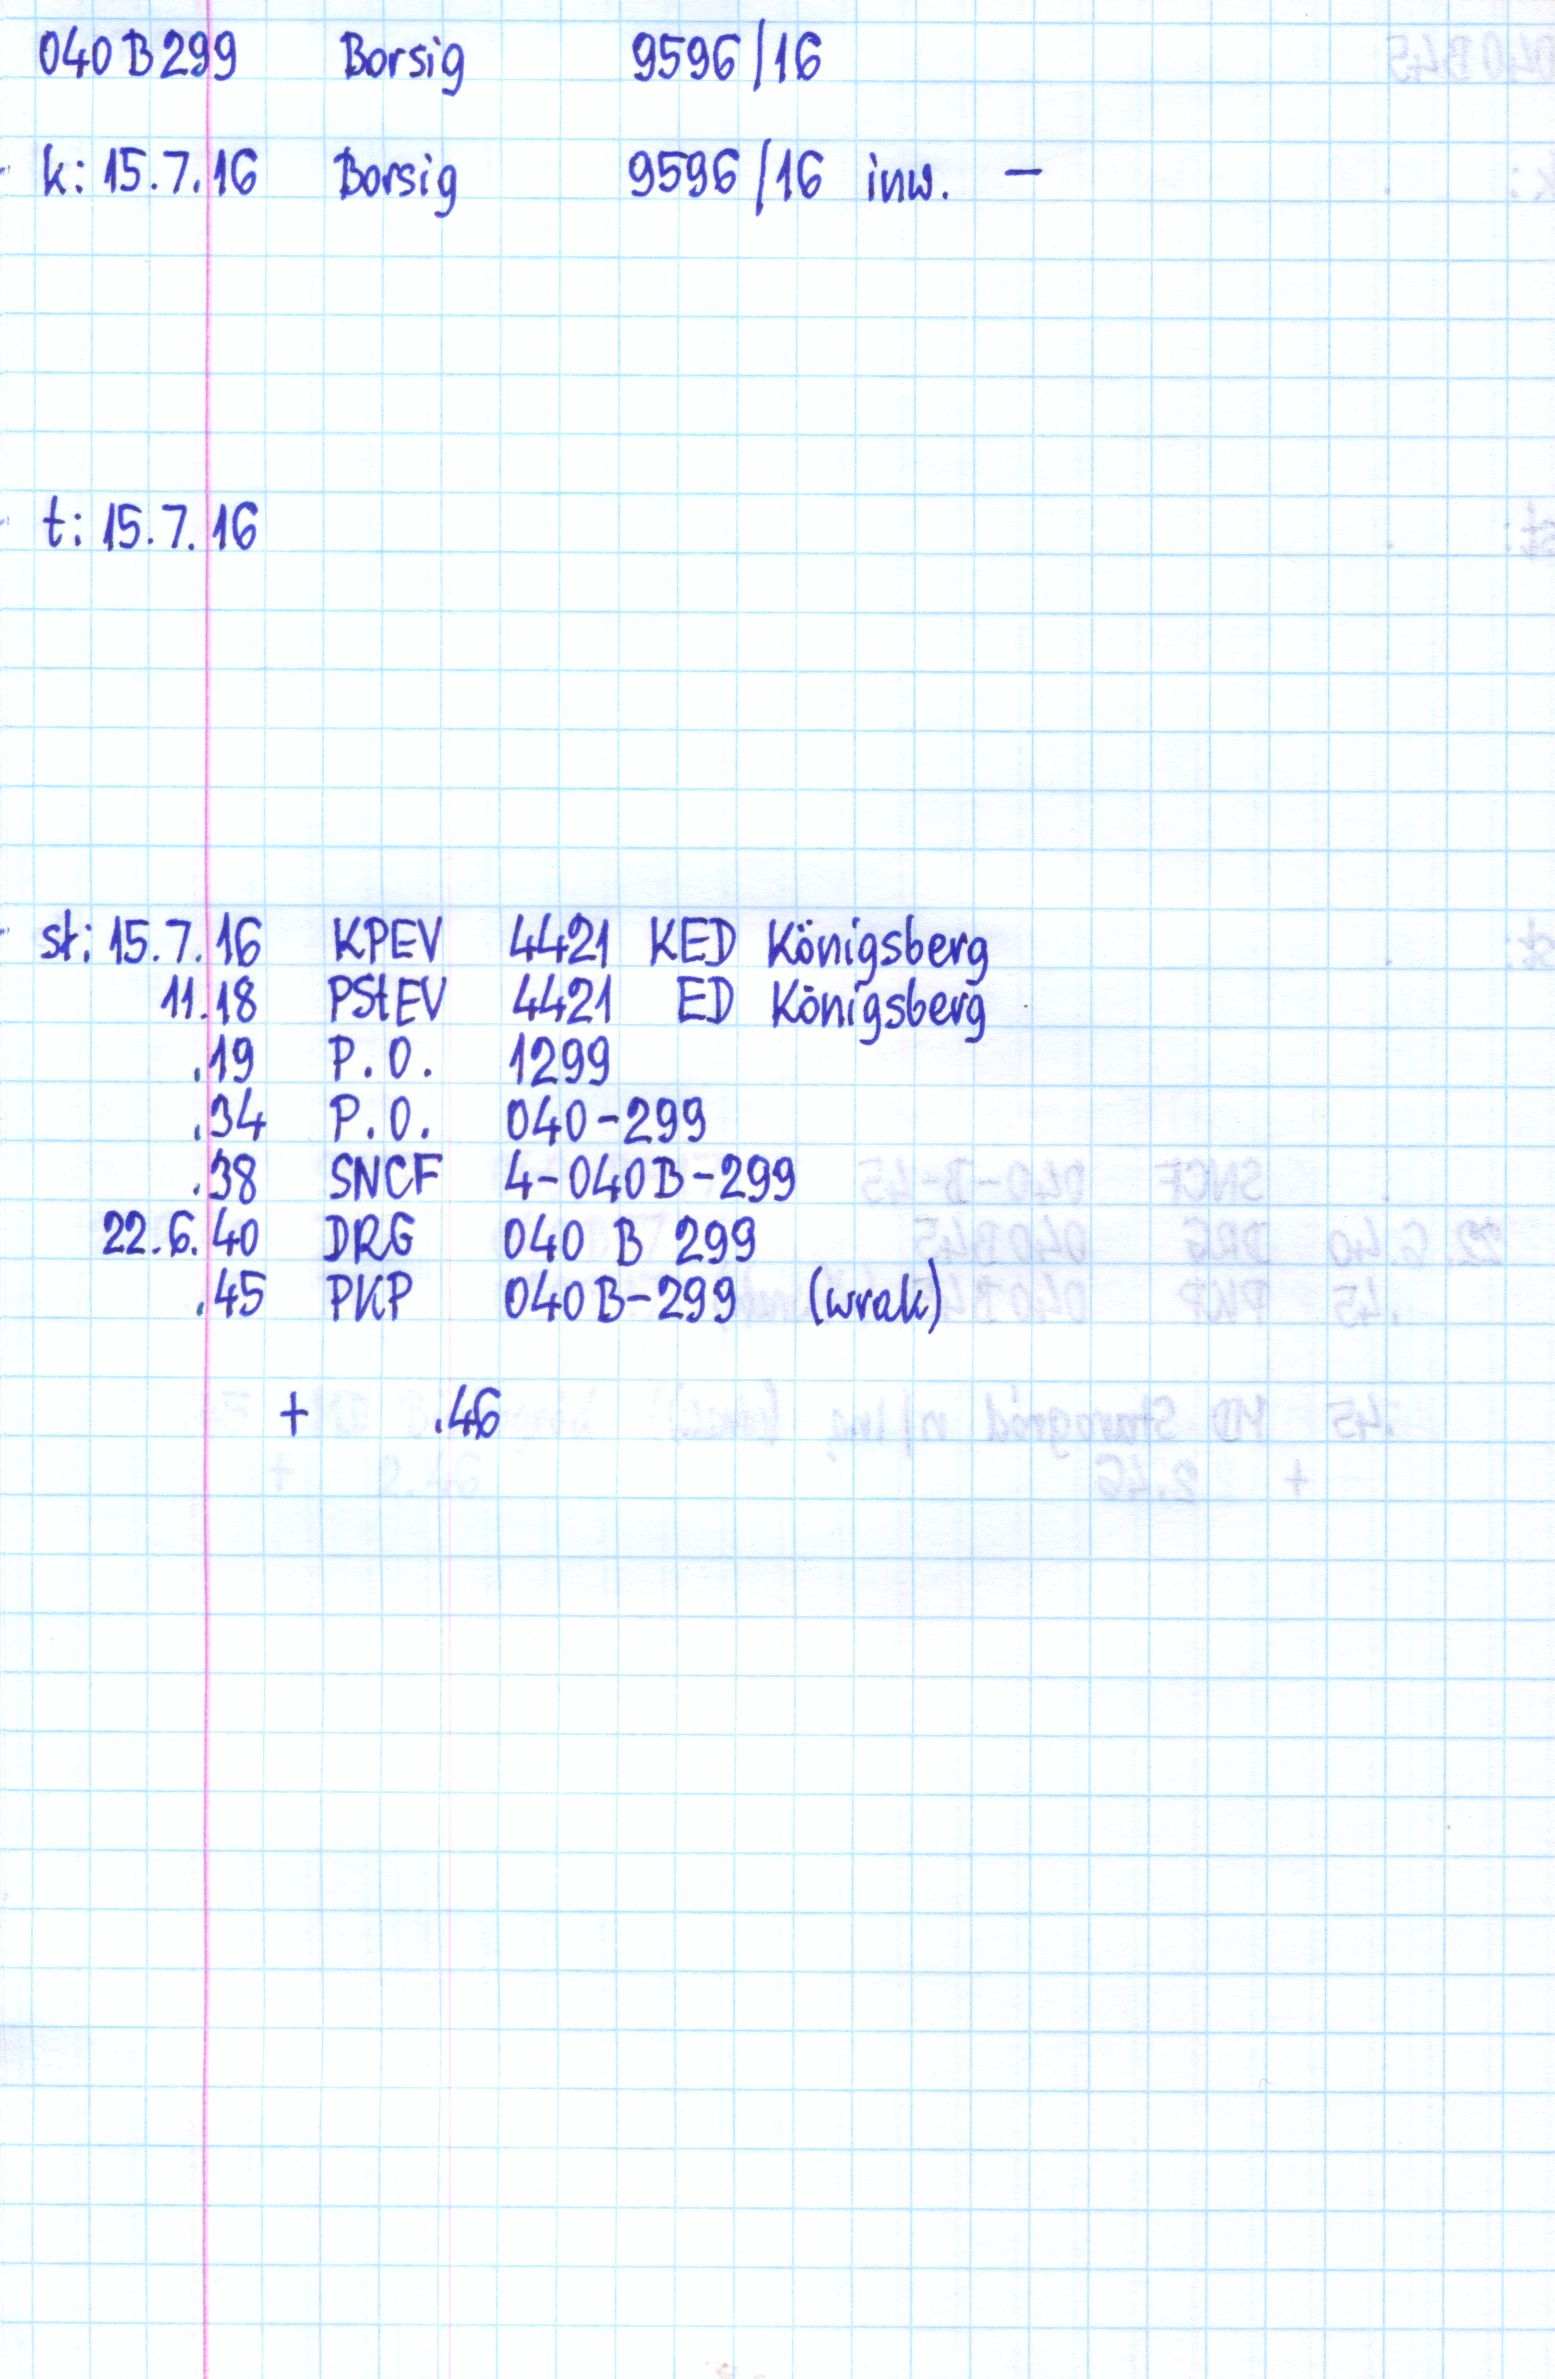 040 B 299 Borsig 9596/16
k: 15.7.16 Borsig 9596/16 inw. –
t: 15.7.16
st: 15.7.16 KPEV 4421 KED Königsberg
11.18 PStEV 4421 ED Königsberg
.19 P.O. 1299
.34 P.O. 040-299
.38 SNCF 4-040B-299
22.6.40 DRG 040 B 299
.45 PKP 040B-299 (wrak)
+ .46